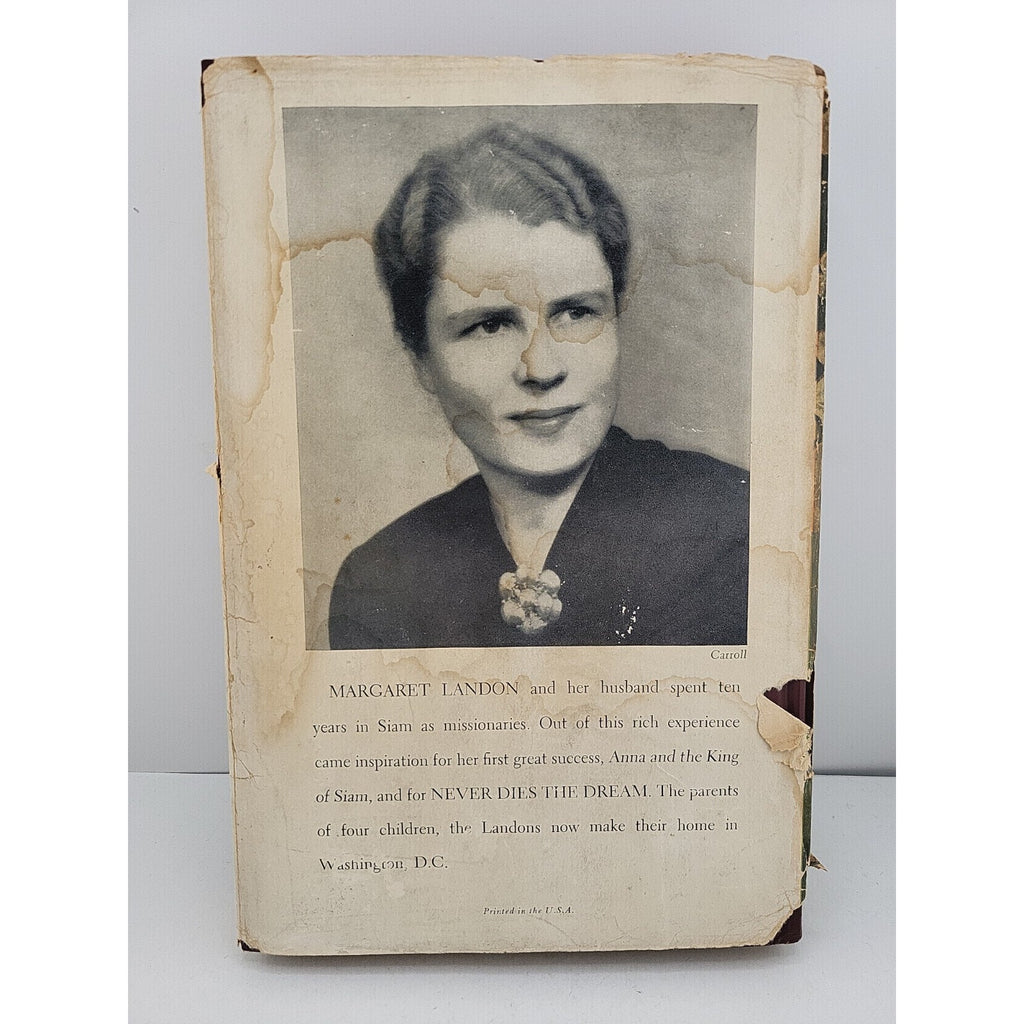 Carroll
MARGARET LANDON and her husband spent ten
years in Siam as missionaries. Out of this rich experience
came inspiration for her first great success, Anna and the King
of Siam, and for NEVER DIES THE DREAM. The parents
of four children, the Landons now make their home in
Washington, D.C.
Printed in the U.S.A.